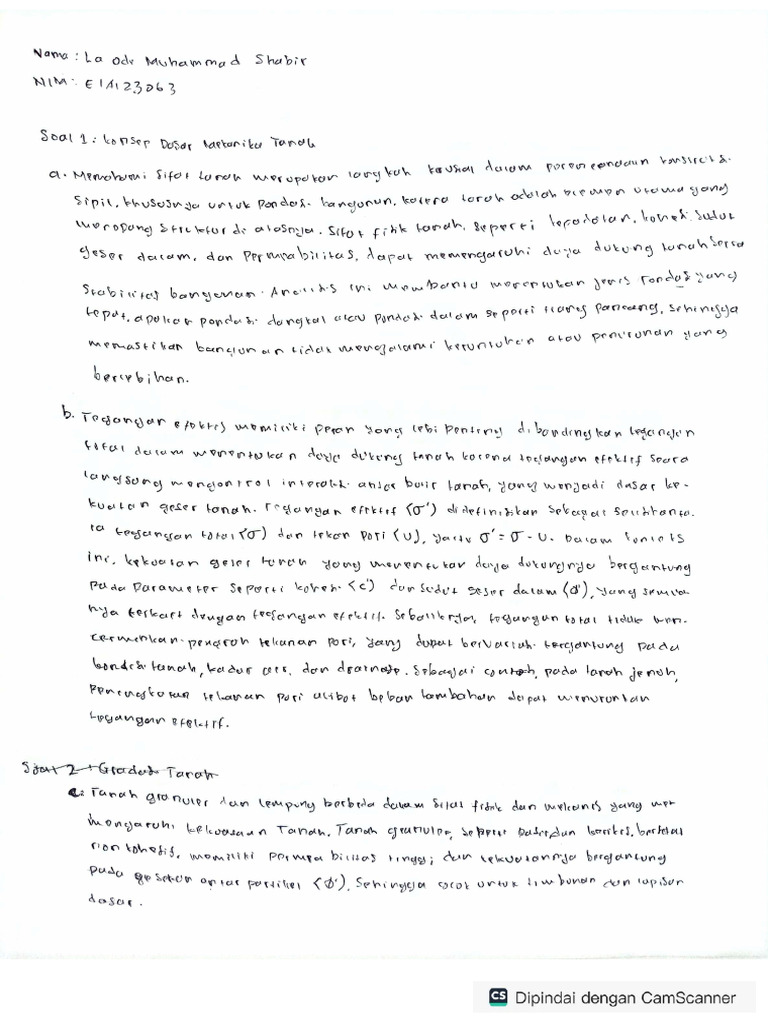 Nama : La Ode Muhammad Shabir
NIM : E1A123063
Soal 1 : Konsep Dasar Mekanika Tanah
a. Memahami sifat tanah merupakan langkah krusial dalam perencanaan konstruksi
sipil, khususnya untuk pondasi bangunan, karena tanah adalah elemen utama yang
menopang struktur di atasnya. Sifat fisik tanah, seperti kepadatan, kohesi, sudut
geser dalam, dan permeabilitas, dapat memengaruhi daya dukung tanah serta
stabilitas bangunan. Analisis ini membantu menentukan jenis pondasi yang
tepat, apakah pondasi dangkal atau pondasi dalam seperti tiang pancang, sehingga
memastikan bangunan tidak mengalami keruntuhan atau penurunan yang
berlebihan.
b. Tegangan efektif memiliki peran yang lebi penting dibandingkan tegangan
total dalam menentukan daya dukung tanah karena tegangan efektif secara
langsung mengontrol interaksi antar butir tanah, yang menjadi dasar ke-
kuatan geser tanah. Tegangan efektif (σ') didefinisikan sebagai selisih anta-
ra tegangan total (σ) dan tekan pori (u), yaitu σ' = σ - u. Dalam konteks
ini, kekuatan geser tanah yang menentukan daya dukungnya bergantung
pada parameter seperti kohesi (c') dan sudut geser dalam (Ø'), yang semua-
nya terkait dengan tegangan efektif. Sebaliknya, tegangan total tidak men-
cerminkan pengaruh tekanan pori, yang dapat bervariasi tergantung pada
kondisi tanah, kadar air, dan drainase. Sebagai contoh, pada tanah jenuh,
peningkatan tekanan pori akibat beban tambahan dapat menurunkan
tegangan efektif.
Soal 2 : Gradasi Tanah
c. Tanah granuler dan lempung berbeda dalam sifat fisik dan mekanis yang mem
mengaruhi kekuatan Tanah. Tanah granuler, seperti pasir dan kerikil,
non kohesif, memiliki permeabilitas tinggi, dan kekuatannya bergantung
pada gesekan antar partikel (Ø'), sehingga cocok untuk timbunan dan lapisan
dasar.
CS Dipindai dengan CamScanner